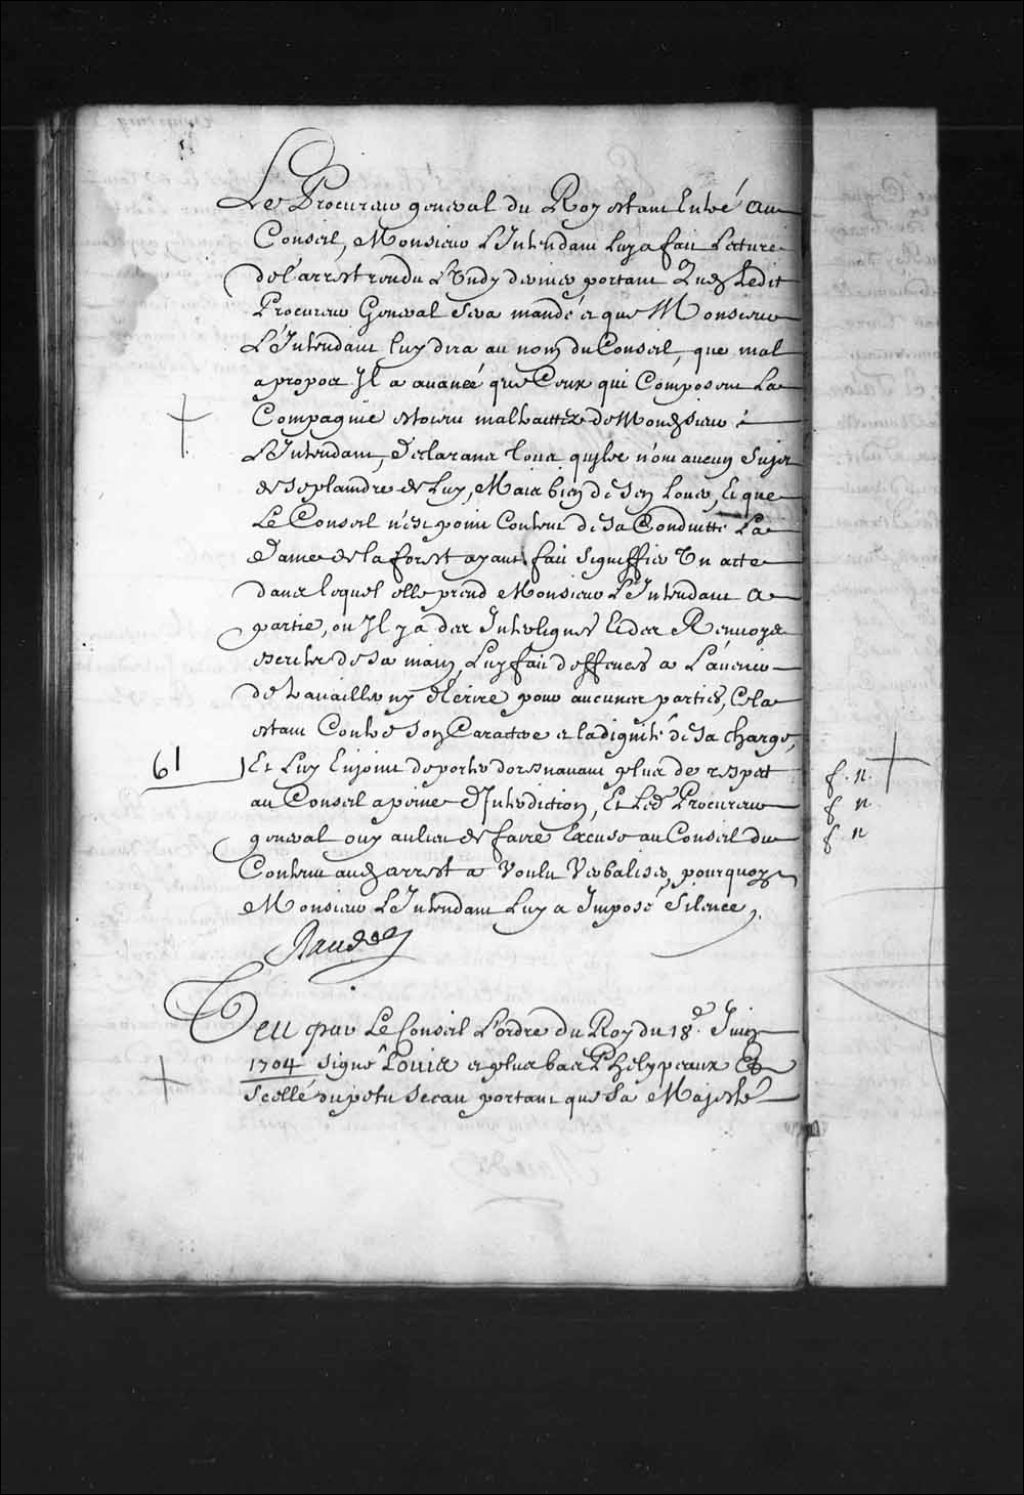 Le Procureur general du Roy estant Entré au
Conseil, Monsieur L'Intendant Luy a fait Lecture
de l'arrest rendu Lundy dernier portant Que Ledit
Procureur General sera mandé et que Monsieur
L'Intendant luy dira au nom du Conseil, que mal
a propos Jl a auancé que Ceux qui Composent La
Compagnie estoient maltraittez de Monsieur
L'Intendant, declarans tous qu'ils n'ont aucun sujet
de se plaindre de Luy, Mais bien de s'en Louer, Et que
Le Conseil n'est point Content de sa Conduitte La
Dame de la forest ayant fait signiffier Un acte
dans lequel elle prend Monsieur L'Intendant a
partie, ou Jl y a des Interlignes Et des Renuoys
escrits de sa main, Luy fait deffences a L'auenir
de trauailler ny d'Ecrire pour aucunes parties, Cela
estant Contre son Caractere et la dignité de sa charge,
61
Et Luy Enjoint de porter doresnauant plus de respet
au Conseil a peine d'Interdiction, Et Led. Procureur
general ouy au lieu de faire Excuse au Conseil du
Contenu aud. arrest a Voulu Verbaliser, pourquoy
Monsieur L'Intendant Luy a Imposé Silence,
Raudot
Veu par Le Conseil L'ordre du Roy du 18e. Juin
1704 signé Louis et plus bas Phelypeaux Et
scellé du petit sceau portant que Sa Majesté
f. n.
f n
f. n